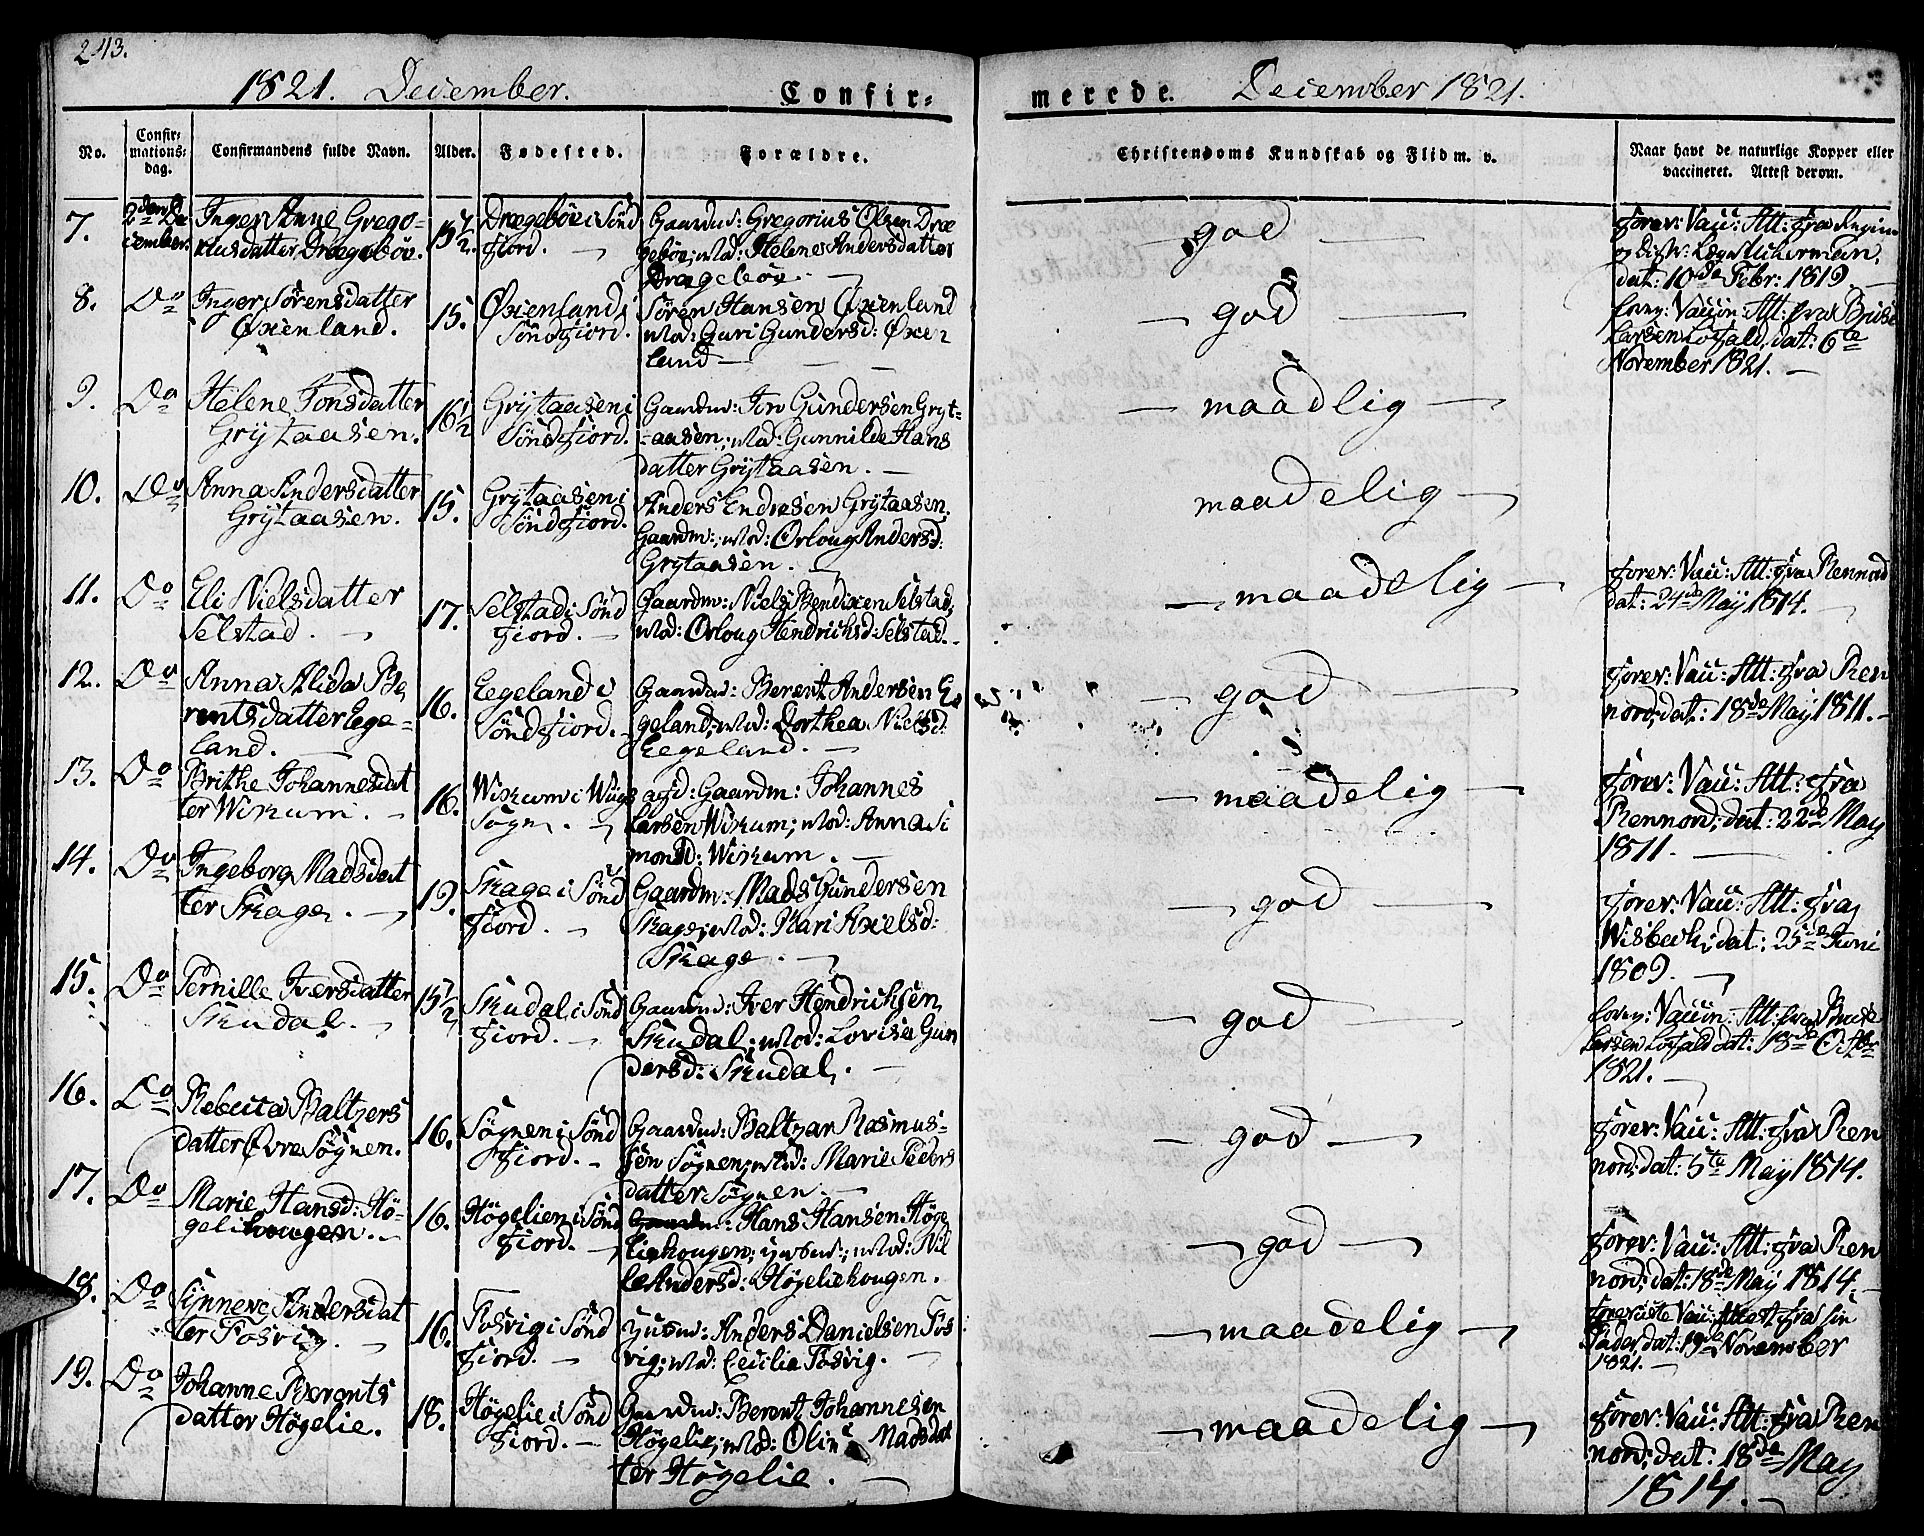 243.
1821. December. Confir-
merede. December 1821.
No.
Confir-
mations-
dag.
Confirmandens fulde Navn.
Alder.
Fødested.
Forældre.
Christendoms Kundskab og Flid m. v.
Naar havt de naturlige Kopper eller
vaccineret. Attest derom.
7.
2den De
cember.
Inger Anne Grego-
riusdatter Drægebøe.
15 1/2
Drægebøe i Sönd
fiord.
Gaardm: Gregorius Olsen Dræ
gebøe; Mod: Helene Andersdatter
Drægebøe.
god
forev: Vacc: Att: fra Regim
og Distr: Læge Ackerman,
dat: 10de Febr: 1819.
8.
Do
Inger Sörensdatter
Öxenland.
15.
Öxenland i
Söndfiord.
Sören Hansen Öxenland
Mod: Guri Gundersd: Öxen
land
god
forev: Vaccin: Att: fra
Larsen Lofald, dat: 6te
November 1821.
9.
Do
Helene Jonsdatter
Grÿtaasen.
16 1/2
Grÿtaasen i
Söndfiord.
Gaardm: Jon Gundersen Grÿt-
-aasen; Mod: Gunnilde Hans
datter Grÿtaasen.
maadlig
10.
Do
Anna Andersdatter
Grÿtaasen.
15.
Grÿtaasen i
Söndfiord.
Anders Endresen Grÿtaasen,
Gaardm:; Mod: Orloug Andersd:
Grÿtaasen.
maadelig
11.
Do
Eli Nielsdatter
Selstad.
17.
Selstad i Sönd
fiord.
Gaardm: Niels Bendixen Selstad,
Mod: Orloug Hendrichsd: Selstad.
maadelig
forev: Vacc: Att: fra Rennord
dat: 24de Maÿ 1814.
12.
Do
Anna Alida Be
rentsdatter Ege-
land.
16.
Eegeland i
Söndfiord.
Gaardm: Berent Andersen E
geland; Mod: Dorthea Nielsd:
Eegeland.
god
forev: Vacc: Att: fra Ren
nord; dat: 18de Maÿ 1811.
13.
Do
Brithe Johannesdat
ter Wixum.
16.
Wixum i Wiigs
Sogn.
afd: Gaardm: Johannes
Larsen Wixum; Mod: Anna Si
monsd: Wixum.
maadelig
forev: Vacc: Att: fra
Rennord; dat: 22de May
1811.
14.
Do
Ingeborg Madsdat
ter Skage.
19.
Skage i Sönd
fiord.
Gaardm: Mads Gundersen
Skage; Mod: Kari Axelsd:
Skage.
god
forev: Vacc: Att: fra
Wisbech; dat: 25de Juni
1809.
15.
Do
Pernille Iversdatter
Skudal.
15 1/2
Skudal i Sönd
fiord.
Gaardm: Iver Hendrichsen
Skudal; Mod: Lovise Gun
dersd: Skudal.
god
forev: Vaccin: Att: fra
Larsen Lofald dat: 18de Octbr
1821.
16.
Do
Rebecca Baltzers
datter Övre Sögnen.
16.
Sögnen i Sönd
fiord.
Gaardm: Baltzar Rasmus-
sen Sögnen; Mod: Marie Peders
datter Sögnen.
god
forev: Vacc: Att: fra Ren
nord; dat: 5te May 1814.
17.
Do
Marie Hansd: Hö-
geliehougen.
16.
Högelien i Sönd
fiord.
Gaardm: Hans Hansen Höge
liehougen; Mod: Nil
le Andersd: Högeliehougen.
god
forev: Vacc: Att: fra Ren
nord; dat: 18de May 1814.
18.
Do
Synneve Andersdat
ter Fosvig.
16.
Fosvig i Sönd
fiord.
Huusm: Anders Danielsen Fos
vig; Mod: Cecilia Fosvig.
maadelig
foreviste Vacc: Attest fra sin
Fader, dat: 19de November
1821.
19.
Do
Johanne Berents
datter Högelie.
18.
Högelie i Sönd
fiord.
Gaardm: Berent Johannesen
Högelie; Mod: Oline Madsdat
ter Högelie.
maadelig
forev: Vacc: Att: fra Ren
nord; dat: 18de May
1814.